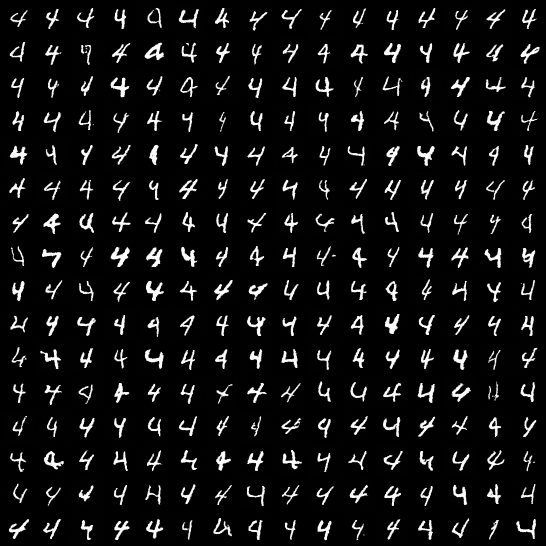 4 4 4 4 4 4 4 4 4 4 4 4 4 4 4 4
4 4 4 4 4 4 4 4 4 4 4 4 4 4 4 4
4 4 4 4 4 4 4 4 4 4 4 4 4 4 4 4
4 4 4 4 4 4 4 4 4 4 4 4 4 4 4 4
4 4 4 4 4 4 4 4 4 4 4 4 4 4 4 4
4 4 4 4 4 4 4 4 4 4 4 4 4 4 4 4
4 4 4 4 4 4 4 4 4 4 4 4 4 4 4 4
4 7 4 4 4 4 4 4 4 4 4 4 4 4 4 4
4 4 4 4 4 4 4 4 4 4 4 4 4 4 4 4
4 4 4 4 4 4 4 4 4 4 4 4 4 4 4 4
4 4 4 4 4 4 4 4 4 4 4 4 4 4 4 4
4 4 4 4 4 4 4 4 4 4 4 4 4 4 4 4
4 4 4 4 4 4 4 4 4 4 4 4 4 4 4 4
4 4 4 4 4 4 4 4 4 4 4 4 4 4 4 4
4 4 4 4 4 4 4 4 4 4 4 4 4 4 4 4
4 4 4 4 4 4 4 4 4 4 4 4 4 4 4 4